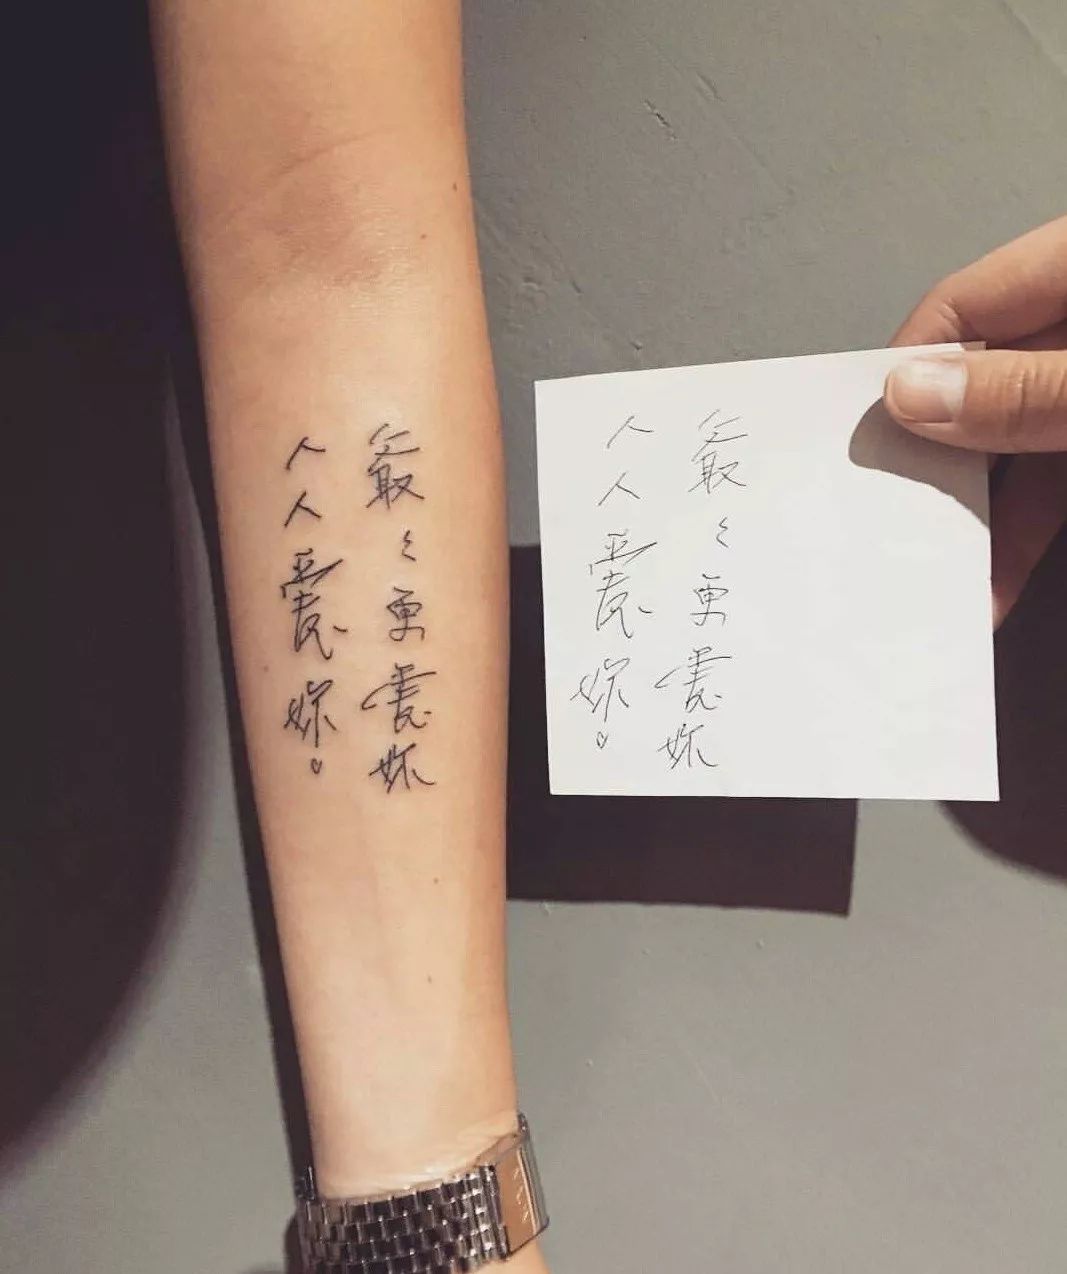 爺々更愛妳
人人愛妳♡
爺々更愛妳
人人愛妳♡